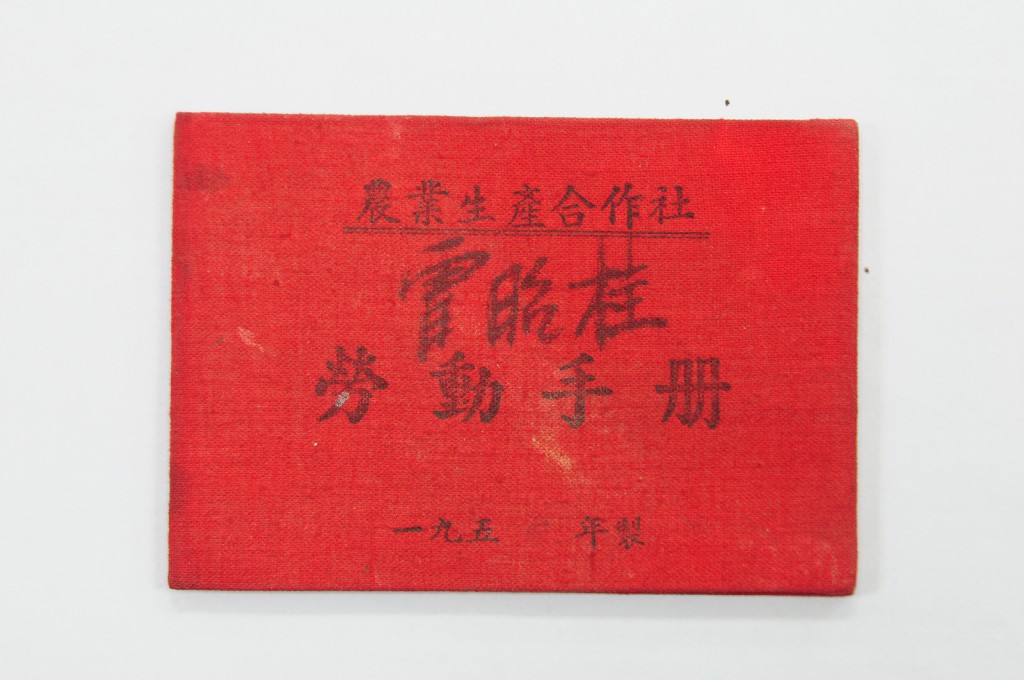 農業生產合作社
昭桂
勞動手册
一九五 年製